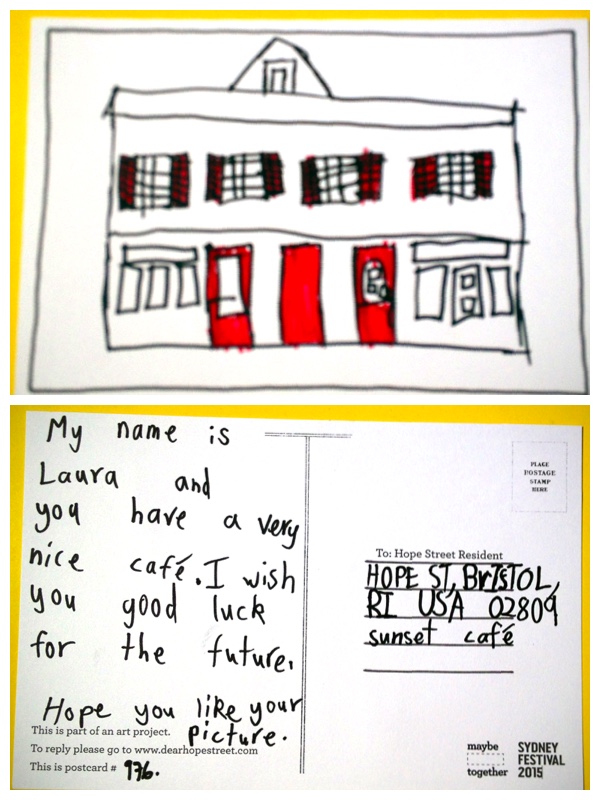 My name is
Laura and
you have a very
nice café. I wish
you good luck
for the future.
Hope you like your
picture.
This is part of an art project.
To reply please go to www.dearhopestreet.com
This is postcard # 976.
PLACE
POSTAGE
STAMP
HERE
To: Hope Street Resident
HOPE ST, BrISTOL,
RI USA 02809
sunset café
maybe
together
SYDNEY
FESTIVAL
2015